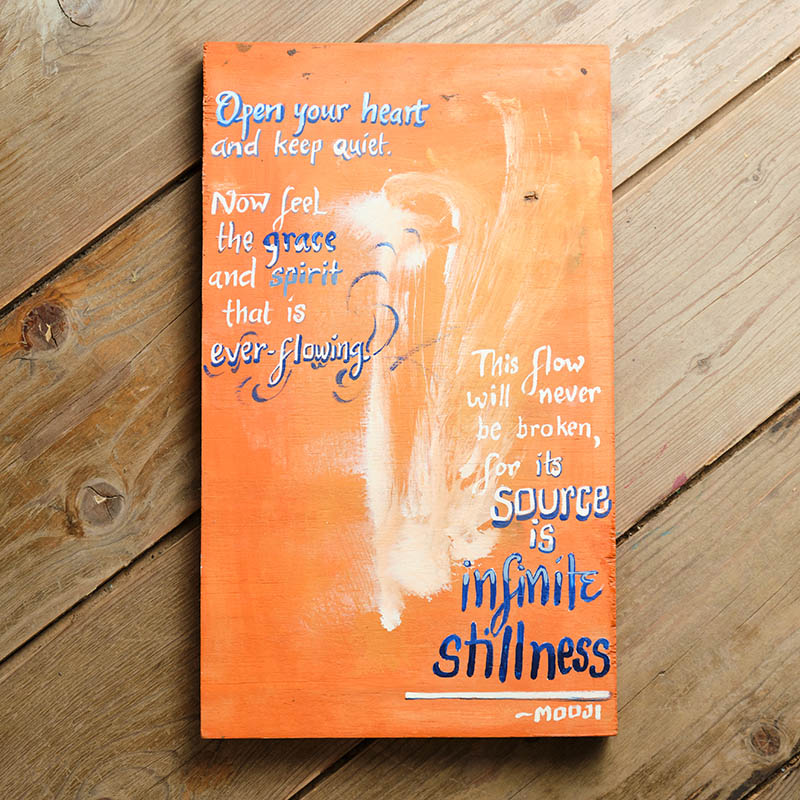 Open your heart
and keep quiet.
Now feel
the grace
and spirit
that is
ever-flowing!
This flow
will never
be broken,
for its
SOURCE
is
infinite
stillness
~MOOJI